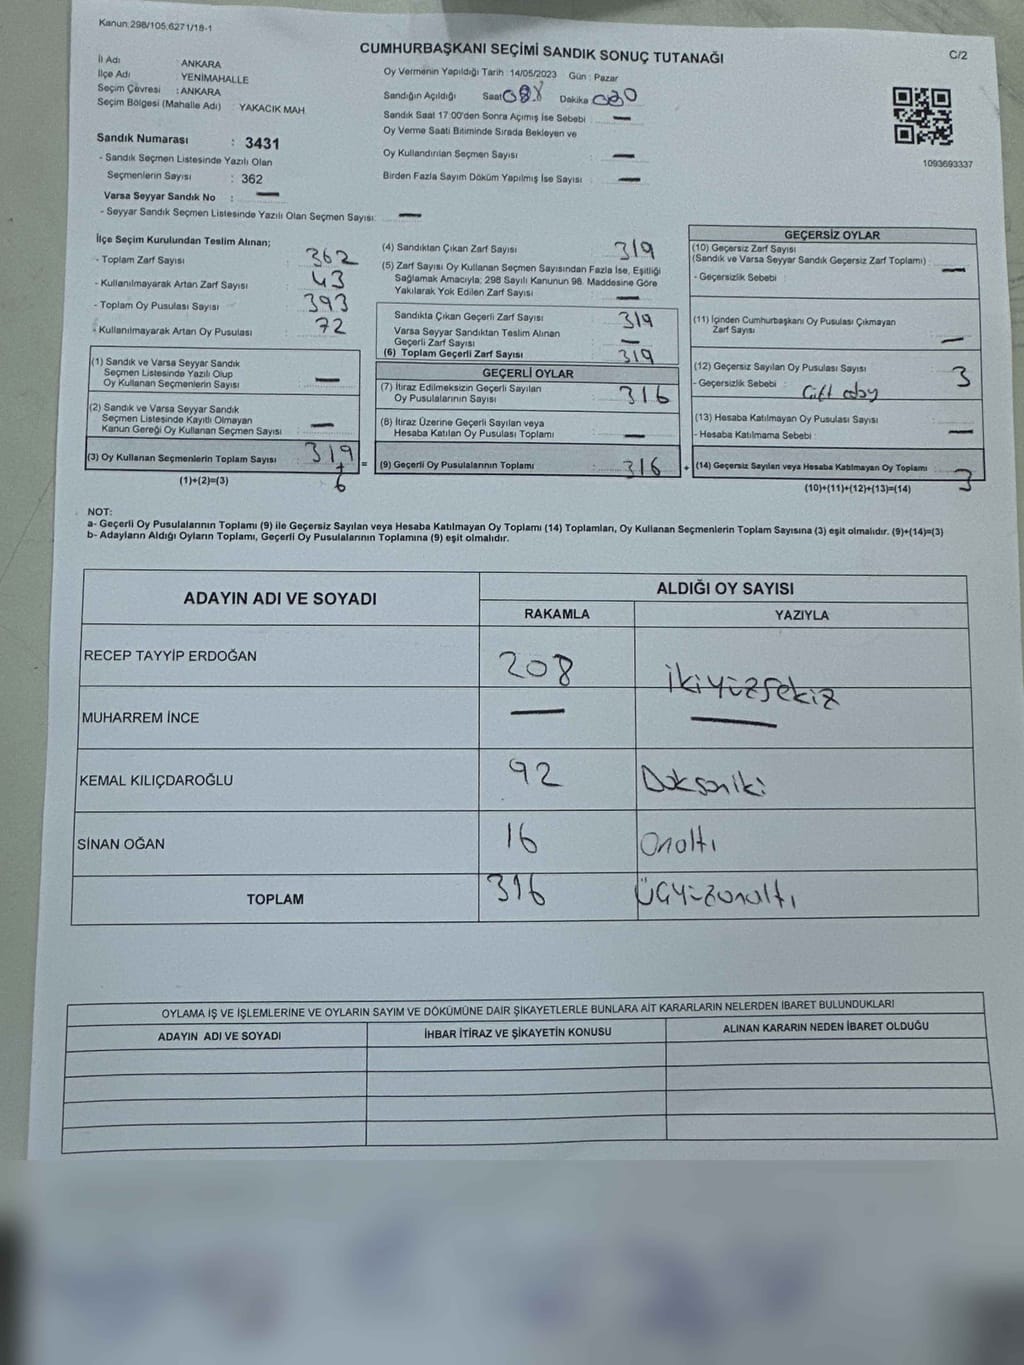 Kanun:298/105,6271/18-1
CUMHURBAŞKANI SEÇİMİ SANDIK SONUÇ TUTANAĞI
C/2
İl Adı : ANKARA
İlçe Adı : YENİMAHALLE
Seçim Çevresi : ANKARA
Seçim Bölgesi (Mahalle Adı) : YAKACIK MAH
Sandık Numarası : 3431
- Sandık Seçmen Listesinde Yazılı Olan
Seçmenlerin Sayısı : 362
Varsa Seyyar Sandık No : —
- Seyyar Sandık Seçmen Listesinde Yazılı Olan Seçmen Sayısı: —
Oy Vermenin Yapıldığı Tarih :14/05/2023 Gün : Pazar
Sandığın Açıldığı Saat Dakika
Sandık Saat 17:00'den Sonra Açımış İse Sebebi : —
Oy Verme Saati Bitiminde Sırada Bekleyen ve
Oy Kullandırılan Seçmen Sayısı : —
Birden Fazla Sayım Döküm Yapılmış İse Sayısı : —
1093693337
İlçe Seçim Kurulundan Teslim Alınan;
- Toplam Zarf Sayısı : 362
- Kullanılmayarak Artan Zarf Sayısı : 43
- Toplam Oy Pusulası Sayısı : 393
- Kullanılmayarak Artan Oy Pusulası : 72
(1) Sandık ve Varsa Seyyar Sandık
Seçmen Listesinde Yazılı Olup
Oy Kullanan Seçmenlerin Sayısı : —
(2) Sandık ve Varsa Seyyar Sandık
Seçmen Listesinde Kayıtlı Olmayan
Kanun Gereği Oy Kullanan Seçmen Sayısı : —
(3) Oy Kullanan Seçmenlerin Toplam Sayısı : 319
(1)+(2)=(3)
6
(4) Sandıktan Çıkan Zarf Sayısı : 319
(5) Zarf Sayısı Oy Kullanan Seçmen Sayısından Fazla İse, Eşitliği
Sağlamak Amacıyla; 298 Sayılı Kanunun 98. Maddesine Göre
Yakılarak Yok Edilen Zarf Sayısı : —
Sandıkta Çıkan Geçerli Zarf Sayısı : 319
Varsa Seyyar Sandıktan Teslim Alınan
Geçerli Zarf Sayısı : —
(6) Toplam Geçerli Zarf Sayısı : 319
GEÇERLİ OYLAR
(7) İtiraz Edilmeksizin Geçerli Sayılan
Oy Pusulalarının Sayısı : 316
(8) İtiraz Üzerine Geçerli Sayılan veya
Hesaba Katılan Oy Pusulası Toplamı : —
= (9) Geçerli Oy Pusulalarının Toplamı : 316
GEÇERSİZ OYLAR
(10) Geçersiz Zarf Sayısı
(Sandık ve Varsa Seyyar Sandık Geçersiz Zarf Toplamı) : —
- Geçersizlik Sebebi :
(11) İçinden Cumhurbaşkanı Oy Pusulası Çıkmayan
Zarf Sayısı : —
(12) Geçersiz Sayılan Oy Pusulası Sayısı : 3
- Geçersizlik Sebebi : Çift
(13) Hesaba Katılmayan Oy Pusulası Sayısı : —
- Hesaba Katılmama Sebebi :
+ (14) Geçersiz Sayılan veya Hesaba Katılmayan Oy Toplamı : 3
(10)+(11)+(12)+(13)=(14)
NOT:
a- Geçerli Oy Pusulalarının Toplamı (9) ile Geçersiz Sayılan veya Hesaba Katılmayan Oy Toplamı (14) Toplamları, Oy Kullanan Seçmenlerin Toplam Sayısına (3) eşit olmalıdır. (9)+(14)=(3)
b- Adayların Aldığı Oyların Toplamı, Geçerli Oy Pusulalarının Toplamına (9) eşit olmalıdır.
ADAYIN ADI VE SOYADI
ALDIĞI OY SAYISI
RAKAMLA YAZIYLA
RECEP TAYYİP ERDOĞAN 208 ikiyüzsekiz
MUHARREM İNCE — —
KEMAL KILIÇDAROĞLU 92 Doksaniki
SİNAN OĞAN 16 Onaltı
TOPLAM 316 Üçyüzonaltı
OYLAMA İŞ VE İŞLEMLERİNE VE OYLARIN SAYIM VE DÖKÜMÜNE DAİR ŞİKAYETLERLE BUNLARA AİT KARARLARIN NELERDEN İBARET BULUNDUKLARI
ADAYIN ADI VE SOYADI İHBAR İTİRAZ VE ŞİKAYETİN KONUSU ALINAN KARARIN NEDEN İBARET OLDUĞU